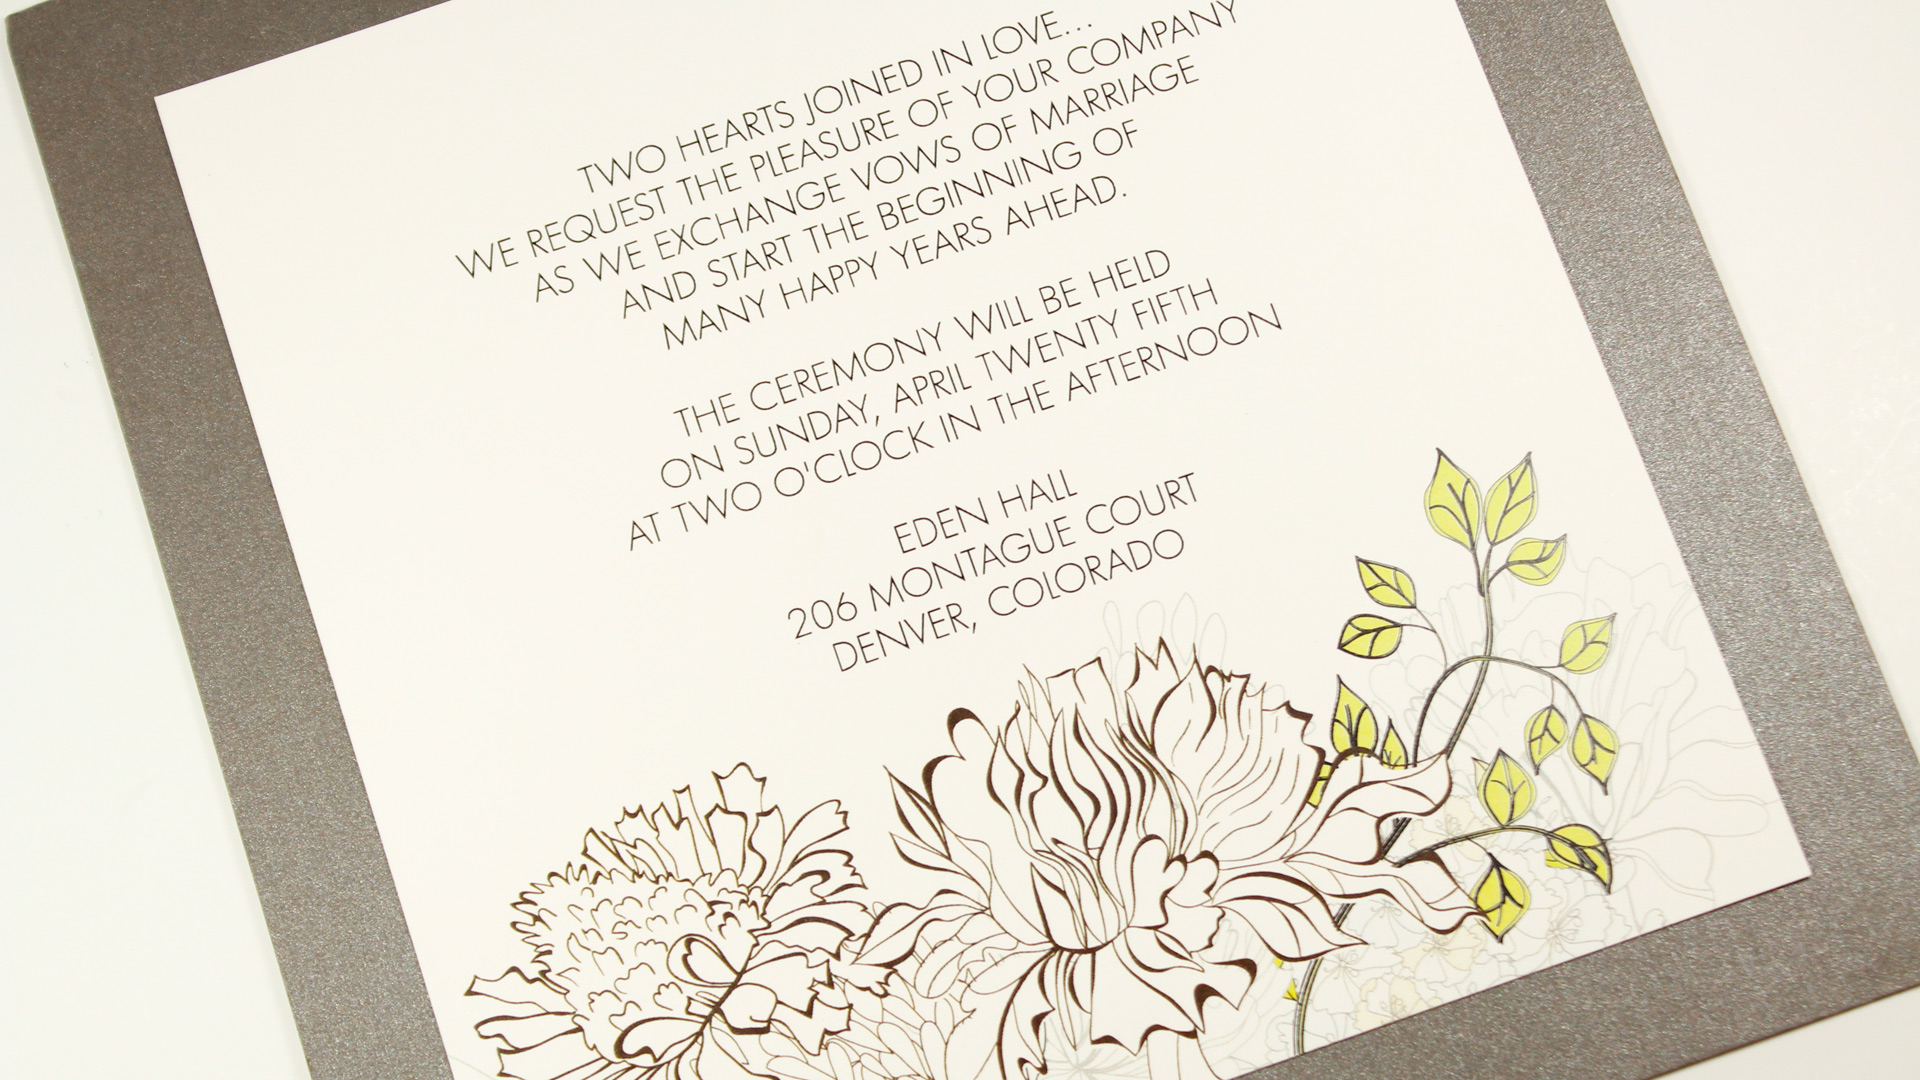 TWO HEARTS JOINED IN LOVE...
WE REQUEST THE PLEASURE OF YOUR COMPANY
AS WE EXCHANGE VOWS OF MARRIAGE
AND START THE BEGINNING OF
MANY HAPPY YEARS AHEAD.
THE CEREMONY WILL BE HELD
ON SUNDAY, APRIL TWENTY FIFTH
AT TWO O'CLOCK IN THE AFTERNOON
EDEN HALL
206 MONTAGUE COURT
DENVER, COLORADO